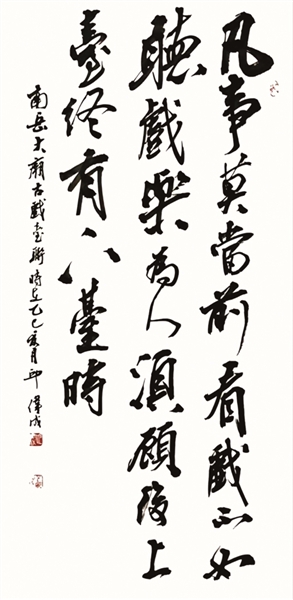 凡事莫當前看戲不如
聽戲樂為人須顧後上
臺終有下臺時
南岳大廟古戲臺聯時在乙巳